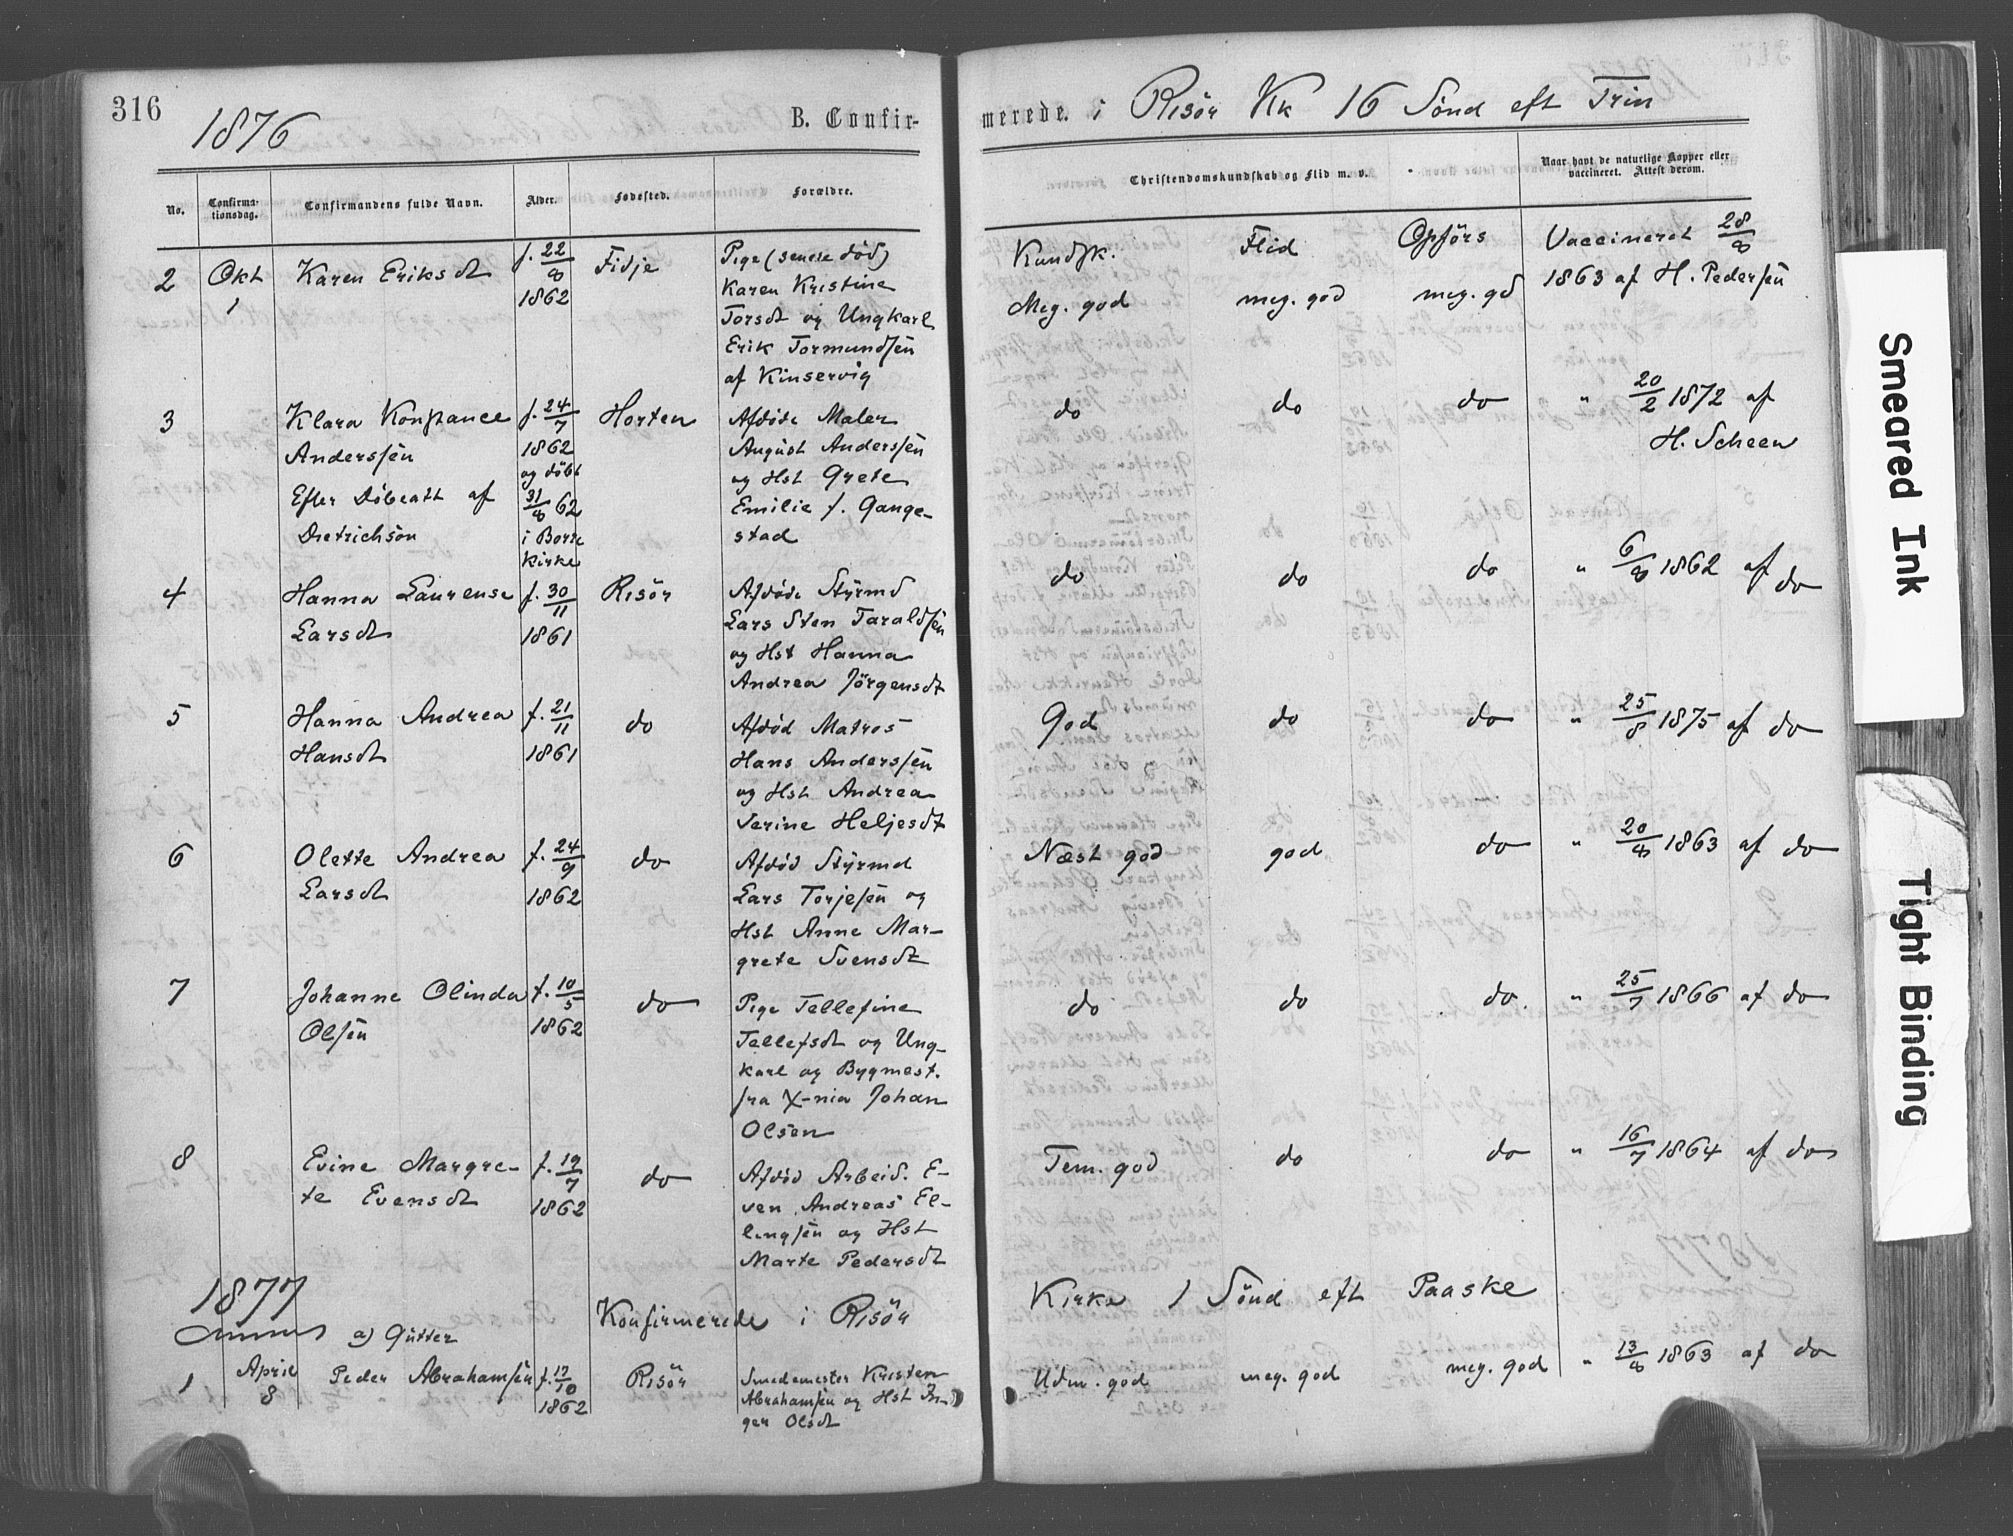 316
1876
B. Confir-
merede. i Risör Kk 16 Sönd eft Trin
No.
Confirma-
tionsdag.
Confirmandens fulde Navn.
Alder.
Fødested.
Forældre.
Christendomskundskab og Flid m. v.
Naar havt de naturlige Kopper eller
vaccineret. Attest derom.
2 Okt
1
Karen Eriksdt
f. 22/8
1862
Fidje
Pige (senere död)
Karen Kristine
Torsdt og Ungkarl
Erik Tormundsen
af Kinservig
Kundsk. Flid Opförs
Meg. god meg. god meg. gd
Vaccineret 28/8
1863 af H. Pedersen
3
Klara Konstance
Anderssen
Efter Döbeatt af
Dietrichson
f. 24/7
1862
og döbt
31/8 62
i Borre
Kirke
Horten
Afdöde Maler
August Anderssen
og Hst Grete
Emilie f. Gange-
stad
do do do
" 20/2 1872 af
H. Scheen
4
Hanna Laurense
Larsdt
f. 30/11
1861
Risör
Afdöde Styrmd
Lars Sten Taraldsen
og Hst Hanna
Andrea Jörgensdt
do do do
" 6/8 1862 af do
5
Hanna Andrea
Hansdt
f. 21/11
1861
do
Afdöd Matros
Hans Anderssen
og Hst Andrea
Serine Heljesdt
God do do
" 25/8 1875 af do
6
Olette Andrea
Larsdt
f. 24/9
1862
do
Afdöd Styrmd
Lars Torjesen og
Hst Anne Mar-
grete Svensdt
Næst god god do
" 20/8 1863 af do
7
Johanne Olinda
Olsen
f. 10/5
1862
do
Pige Tellefine
Tellefsdt og Ung-
karl og Bygmest.
fra X-nia Johan
Olsen
do do do
" 25/7 1866 af do
8
Evine Margre-
te Evensdt
f. 19/7
1862
do
Afdöd Arbeid. E-
ven Andreas El-
lingsen og Hst
Marte Pedersdt
Tem. god do do
" 16/7 1864 af do
1877
Konfirmerede i Risör Kirke 1 Sönd eft Paaske
a) Gutter
1 April
8
Peder Abrahamsen
f. 12/10
1862
Risör
Smedemester Kristen
Abrahamsen og Hst In-
ger Olsdt
Udm. god meg. god meg. god
" 13/8 1863 af do
Smeared Ink
Tight Binding